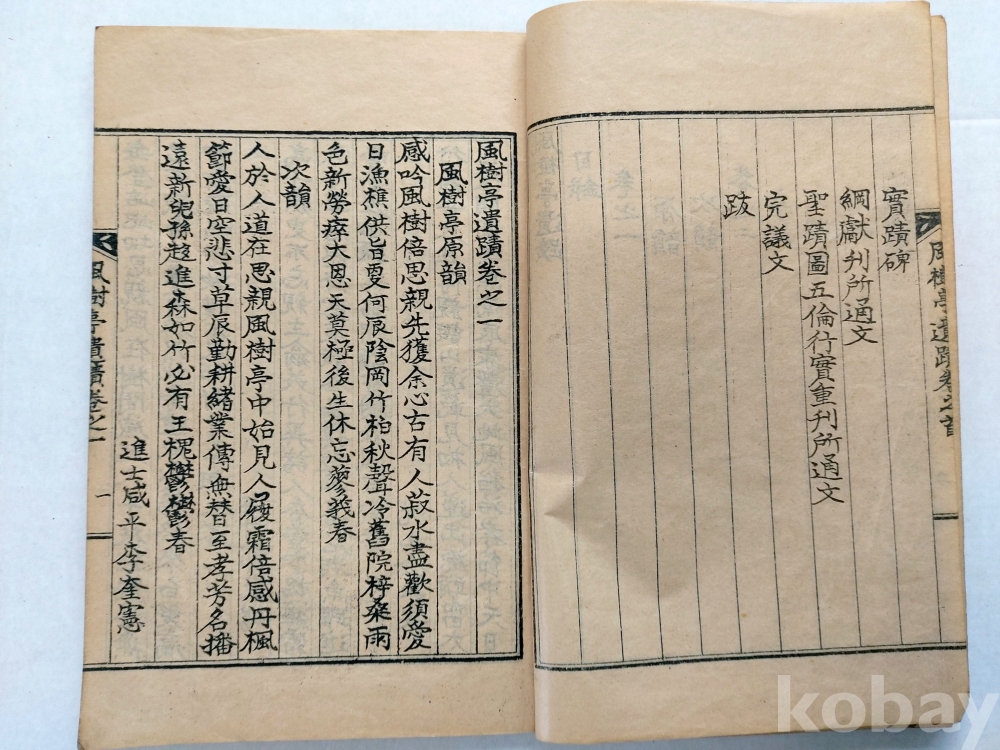 風樹亭遺蹟卷之首
實蹟碑
綱獻刊所通文
聖蹟圖五倫行實重刊所通文
完議文
跋
風樹亭遺蹟卷之一
風樹亭原韻
感吟風樹倍思親先獲余心古有人菽水盡歡須愛
日漁樵供旨夏何辰陰岡竹柏秋聲冷舊院梓桑雨
色新勞瘁大恩天莫極後生休忘蓼莪春
次韻
人於人道在思親風樹亭中始見人履霜倍感丹楓
節愛日空悲寸草辰勤耕緖業傳無替至孝芳名播
遠新兒孫趍進森如竹必有王槐鬱鬱春
進士咸平李奎憲
風樹亭遺蹟卷之一
一
kobay